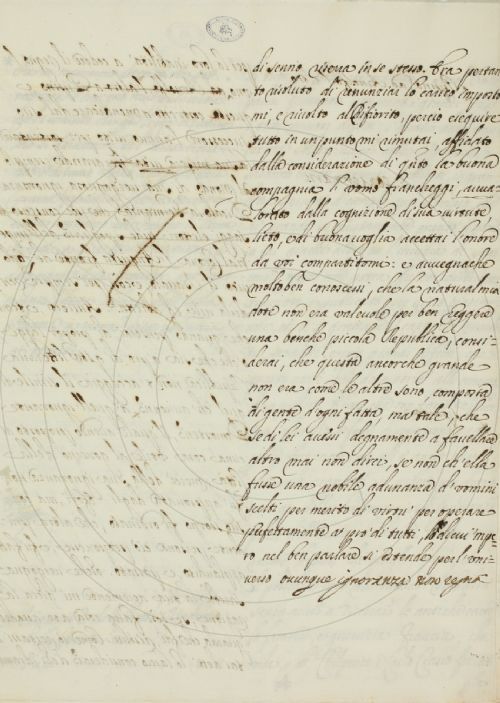 di senno veniva in se stesso. Era portan
to risoluto di rinunziar lo carico imposto
mi, e rivolto al perciò eseguire
tutto in un punto mi rimutai affidato
dalla considerazione di qto la buona
compagnia l'vomo avva-
lorato dalla cognizione di sua virtute
lieto, e di buona voglia accettai l'onore
da voi compartitomi: e avvegnache
molto ben conoscessi, che la natural mia
dote non era valevole per ben reggere
una benche piccola Republica, consi=
derai, che questa ancorche grande
non era come le altre sono, composta
di gente d'ogni fatta, ma tale, che
se di lei avessi degnamente a favellare
altro mai non direi, se non ch'ella
fusse una nobile adunanza d'vomini
scelti per merito di virtù per operare
perfettamente a prò di tutti, il di levi impe=
ro nel ben parlare si estende per l'vni=
verso ovunque ignoranza non regna